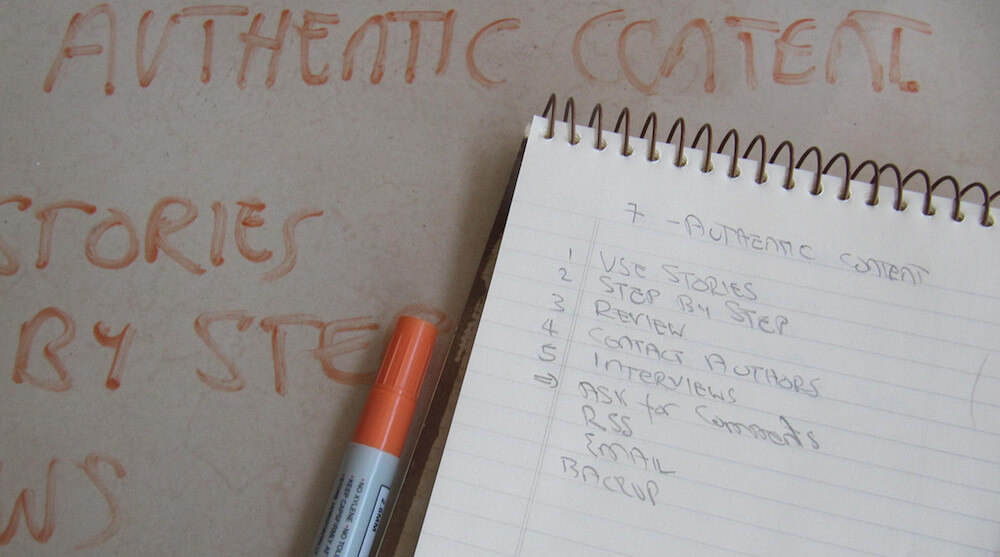 AUTHENTIC CONTENT
STORIES
BY STEP
WS
7 - AUTHENTIC CONTENT
1 USE STORIES
2 STEP BY STEP
3 REVIEW
4 CONTACT AUTHORS
5 INTERVIEWS
⇒ ASK for Comments
RSS
EMAIL
BACKUP
2.5MM
•NO XYLENE •NO TOLU
•KEEP CAP